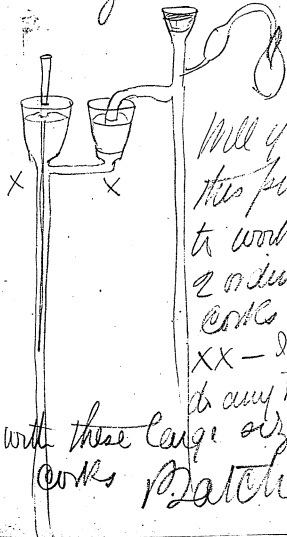 X X
Will y
this p
to work
2 ordin
Corks
XX –
do any
with these large siz
Corks Batch